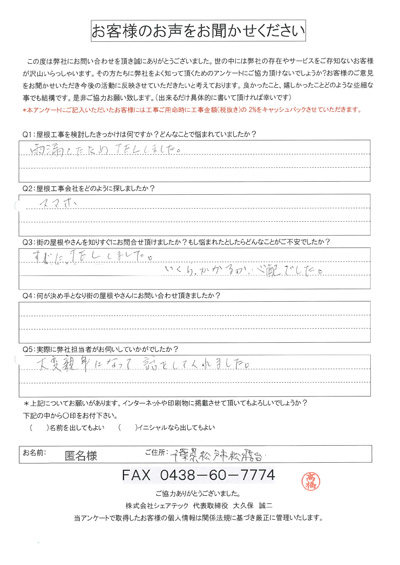 お客様のお声をお聞かせください
この度は弊社にお問い合わせを頂き誠にありがとうございました。世の中には弊社の存在やサービスをご存知ないお客様
が沢山いらっしゃいます。その方たちに弊社をよく知って頂くためのアンケートにご協力頂けないでしょうか?お客様のご意見
をお聞かせいただき今後の活動に反映させていただきたいと考えております。良かったこと、嬉しかったことどのような些細な
事でも結構です。是非ご協力お願い致します。(出来るだけ具体的に書いて頂ければ幸いです)
*本アンケートにご記入いただいたお客様には工事ご用命時に工事金額(税抜き)の2%をキャッシュバックさせていただきます。
Q1:屋根工事を検討したきっかけは何ですか?どんなことで悩まれていましたか?
雨漏したため TELしました。
Q2:屋根工事会社をどのように探しましたか?
スマホ
Q3:街の屋根やさんを知りすぐにお問合せ頂けましたか?もし悩まれたとしたらどんなことがご不安でしたか?
すぐにTELしました。
いくらかかるか、心配でした。
Q4:何が決め手となり街の屋根やさんにお問い合わせ頂きましたか?
Q5:実際に弊社担当者がお伺いしていかがでしたか?
大変親身になって話をしてくれました。
*上記についてお願いがあります。インターネットや印刷物に掲載させて頂いてもよろしいでしょうか?
下記の中から〇印をお付下さい。
( )名前を出してもよい ( )イニシャルなら出してもよい
お名前: 匿名様 ご住所: 千葉県松戸市
FAX 0438-60-7774
高橋
ご協力ありがとうございました。
株式会社シェアテック 代表取締役 大久保 誠二
当アンケートで取得したお客様の個人情報は関係法規に基づき厳正に管理いたします。